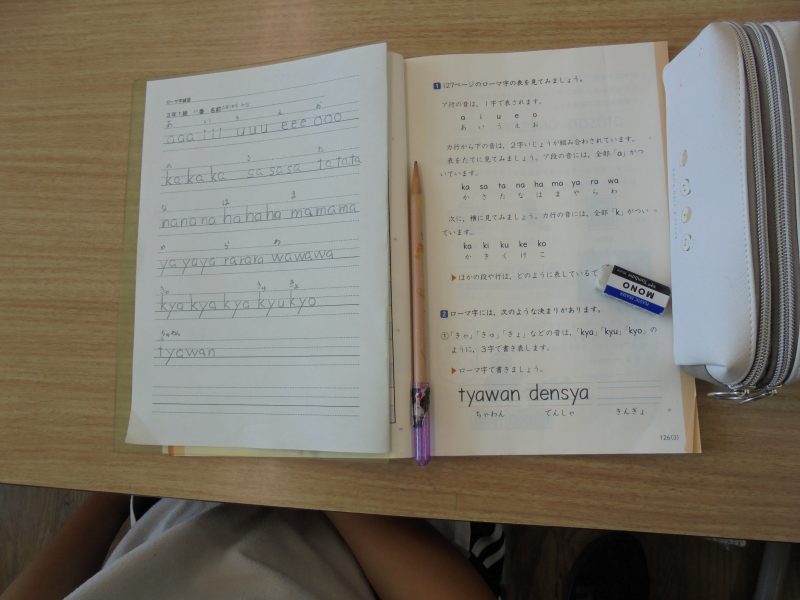 ローマ字練習
3年1組 番 名前
あ い う え お
aaa iii uuu eee ooo
か さ た
ka ka ka sa sa sa ta ta ta
な は ま
na na na ha ha ha ma ma ma
や ら わ
ya ya ya ra ra ra wa wa wa
きゃ きゅ きょ
kya kya kya kyu kyo
ちゃわん
tyawan
1 127ページのローマ字の表を見てみましょう。
ア行の音は、1字で表されます。
a i u e o
あ い う え お
カ行から下の音は、2字いじょうが組み合わされています。
表をたてに見てみましょう。ア段の音には、全部「a」がつ
いています。
ka sa ta na ha ma ya ra wa
か さ た な は ま や ら わ
次に、横に見てみましょう。カ行の音には、全部「k」がつい
ています。
ka ki ku ke ko
か き く け こ
▶ほかの段や行は、どのように表しているで
2 ローマ字には、次のような決まりがあります。
①「きゃ」「きゅ」「きょ」などの音は、「kya」「kyu」「kyo」の
ように、3字で書き表します。
▶ローマ字で書きましょう。
tyawan densya
ちゃわん でんしゃ きんぎょ
126(3)
MONO